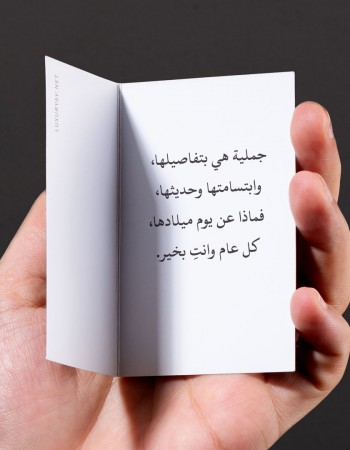 جملية هي بتفاصيلها،
وابتسامتها وحديثها،
فماذا عن يوم ميلادها،
كل عام وانتِ بخير.
LUXURYBY.NET